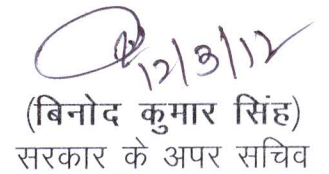 12/3/12
(बिनोद कुमार सिंह)
सरकार के अपर सचिव